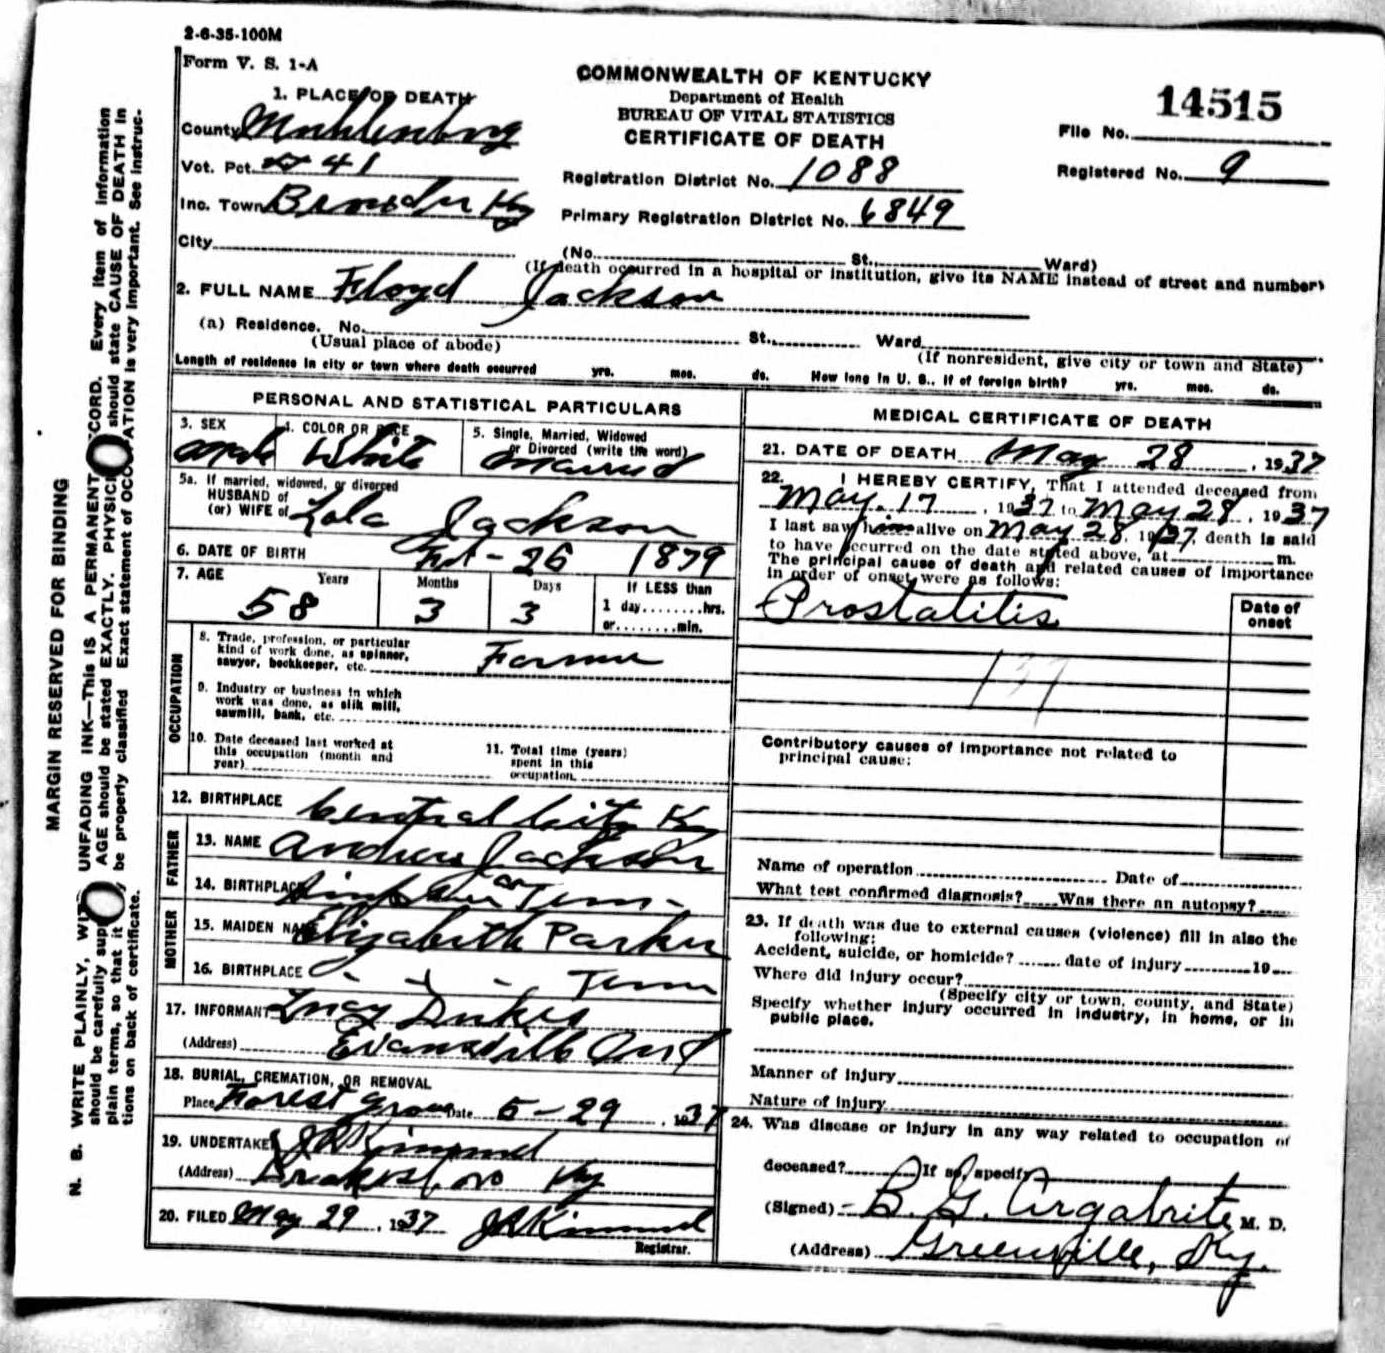 2-6-35-100M
Form V. S. 1-A
COMMONWEALTH OF KENTUCKY
Department of Health
BUREAU OF VITAL STATISTICS
CERTIFICATE OF DEATH
14515
File No.
Registered No. 9
1. PLACE OF DEATH
County Muhlenberg
Vot. Pct. 41
Inc. Town Ky
City
Registration District No. 1088
Primary Registration District No. 6849
(No. St. Ward)
(If death occurred in a hospital or institution, give its NAME instead of street and number)
2. FULL NAME Floyd Jackson
(a) Residence. No. St. Ward
(Usual place of abode) (If nonresident, give city or town and State)
Length of residence in city or town where death occurred yrs. mos. ds. How long in U. S., if of foreign birth? yrs. mos. ds.
PERSONAL AND STATISTICAL PARTICULARS
3. SEX 4. COLOR OR RACE 5. Single, Married, Widowed
or Divorced (write the word)
male White married
5a. If married, widowed, or divorced
HUSBAND of
(or) WIFE of Lola Jackson
6. DATE OF BIRTH Feb - 26 1879
7. AGE Years Months Days If LESS than
58 3 3 1 day........hrs.
or........min.
OCCUPATION
8. Trade, profession, or particular
kind of work done, as spinner,
sawyer, bookkeeper, etc. Farmer
9. Industry or business in which
work was done, as silk mill,
sawmill, bank, etc.
10. Date deceased last worked at
this occupation (month and
year)
11. Total time (years)
spent in this
occupation
12. BIRTHPLACE Central City Ky
FATHER
13. NAME Andrew Jackson
14. BIRTHPLACE Tenn -
MOTHER
15. MAIDEN NAME Elizabeth Parker
16. BIRTHPLACE Tenn
17. INFORMANT Lucy Dukes
(Address) Evansville Ind
18. BURIAL, CREMATION, OR REMOVAL
Place Forest Grove Date 5-29, 1937
19. UNDERTAKER J R Kimmel
(Address) Ky
20. FILED May 29, 1937 J R Kimmel
Registrar.
MEDICAL CERTIFICATE OF DEATH
21. DATE OF DEATH May 28, 1937
22. I HEREBY CERTIFY, That I attended deceased from
May. 17, 1937 to May 28, 1937
I last saw him alive on May 28, 1937, death is said
to have occurred on the date stated above, at m.
The principal cause of death and related causes of importance
in order of onset were as follows:
Date of
onset
Prostatitis
137
Contributory causes of importance not related to
principal cause:
Name of operation Date of
What test confirmed diagnosis? Was there an autopsy?
23. If death was due to external causes (violence) fill in also the
following:
Accident, suicide, or homicide? date of injury 19
Where did injury occur?
(Specify city or town, county, and State)
Specify whether injury occurred in industry, in home, or in
public place.
Manner of injury
Nature of injury
24. Was disease or injury in any way related to occupation of
deceased? If so, specify
(Signed) B. G. Argabrite, M. D.
(Address) Greenville, Ky.
MARGIN RESERVED FOR BINDING
N. B. WRITE PLAINLY, WITH UNFADING INK—THIS IS A PERMANENT RECORD. Every item of information
should be carefully supplied. AGE should be stated EXACTLY. PHYSICIANS should state CAUSE OF DEATH in
plain terms, so that it may be properly classified Exact statement of OCCUPATION is very important. See instruc-
tions on back of certificate.